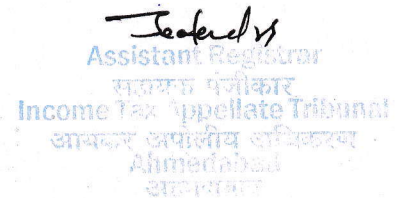 Assistant Registrar
सहायक पंजीकार
Income Tax Appellate Tribunal
आयकर अपीलीय अधिकरण
Ahmedabad
अहमदाबाद